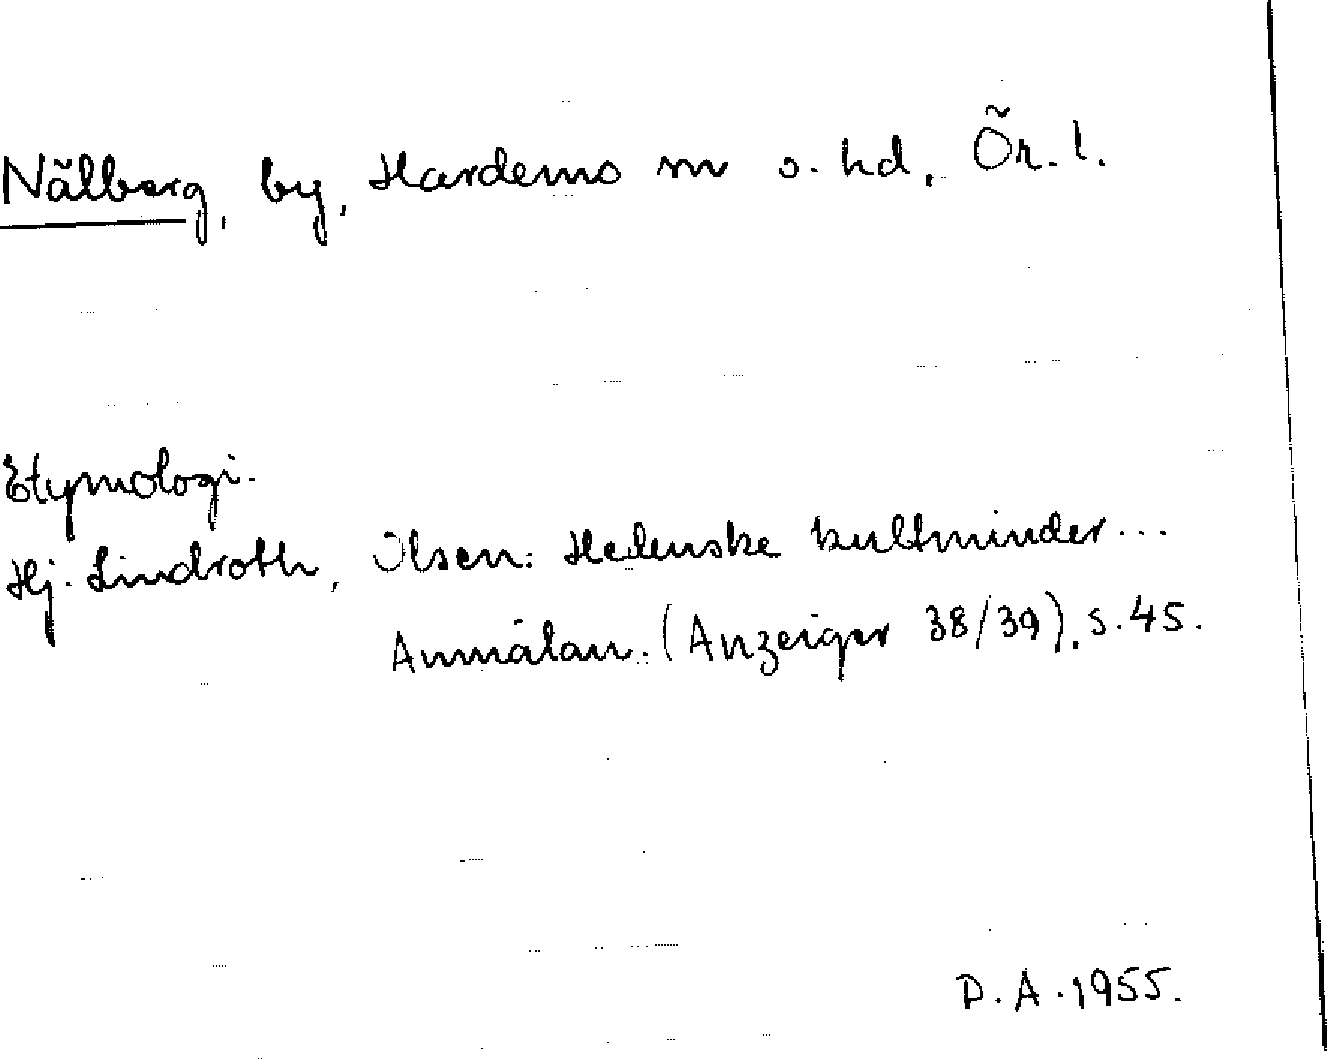 Nälberg, by, Hardemo sn o. hd, Ör. l.
Etymologi.
Hj. Lindroth, Olsen: Hedenske kultminder...
Anmälan. (Anzeiger 38/39), s. 45.
D. A. 1955.